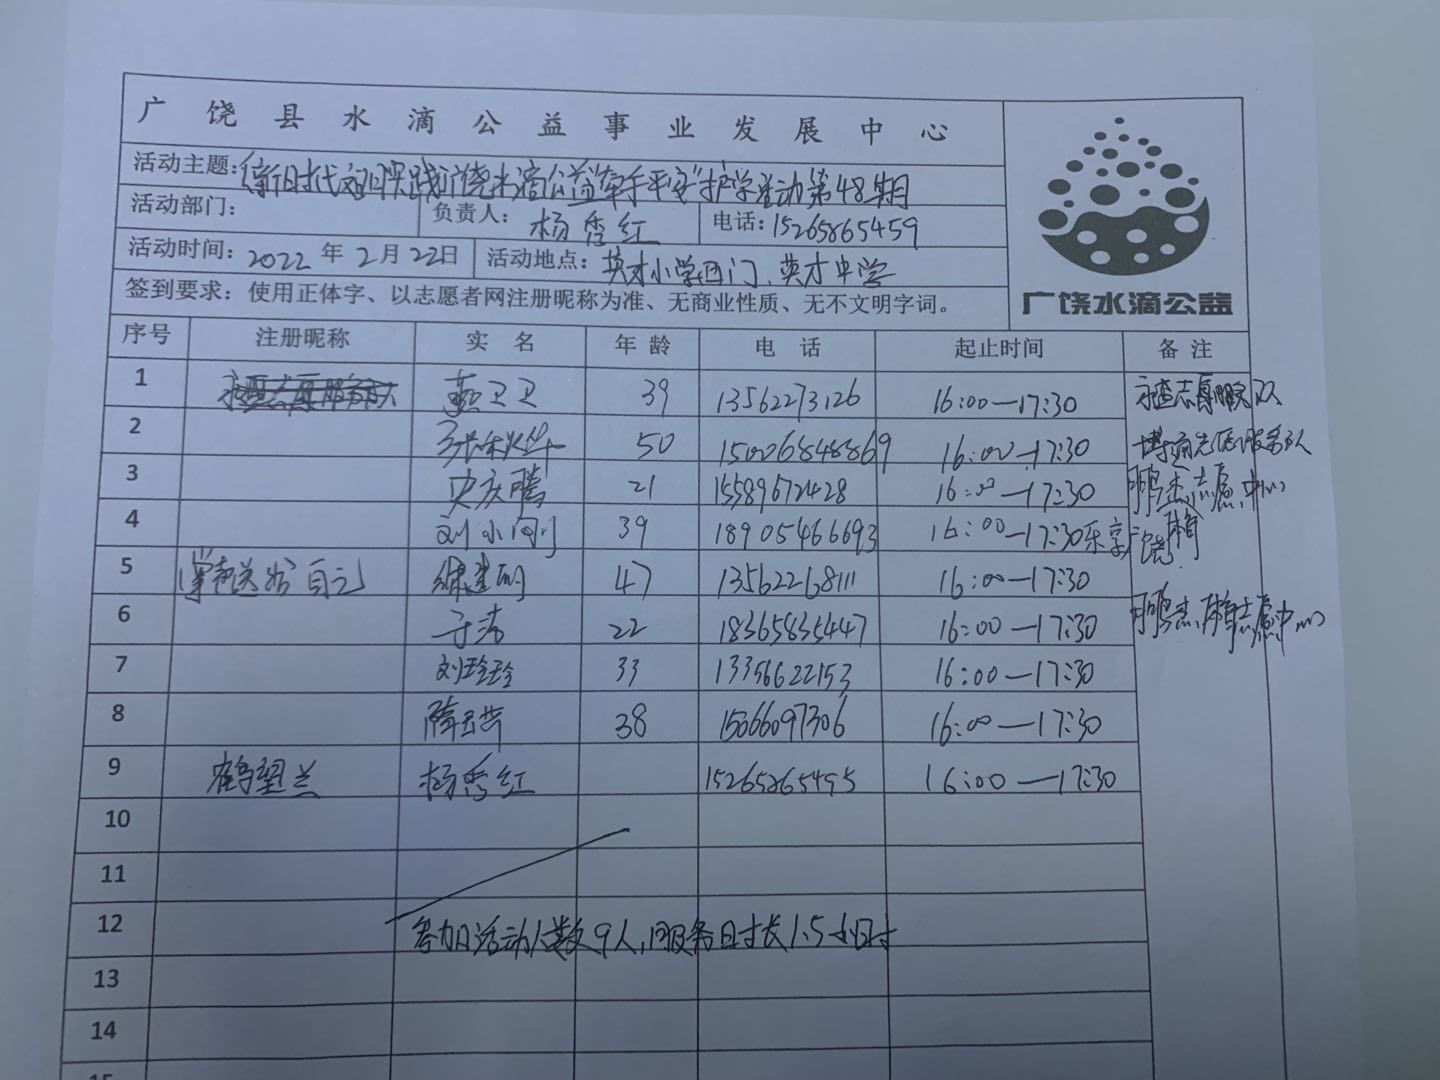 广饶县水滴公益事业发展中心
活动主题:新时代文明实践广饶水滴公益"牵手平安"护学活动第48期
活动部门: 负责人: 杨秀红 电话:15265865459
活动时间:2022年2月22日 活动地点: 英才小学西门、英才中学
签到要求:使用正体字、以志愿者网注册昵称为准、无商业性质、无不文明字词。
广饶水滴公益
序号 注册昵称 实名 年龄 电话 起止时间 备注
1 燕卫卫 39 13562273126 16:00—17:30
2 50 15006848869 16:00—17:30
3 史庆腾 21 15589672428 16:00—17:30
4 刘小闯 39 18905466693 16:00—17:30 乐享广饶
5 47 13562268111 16:00—17:30
6 于涛 22 18365835447 16:00—17:30
7 刘玲玲 33 13356622153 16:00—17:30
8 隋 38 15066097306 16:00—17:30
9 鹤望兰 杨秀红 15265865495 16:00—17:30
10
11
12 参加活动人数9人,服务时长1.5小时
13
14
15